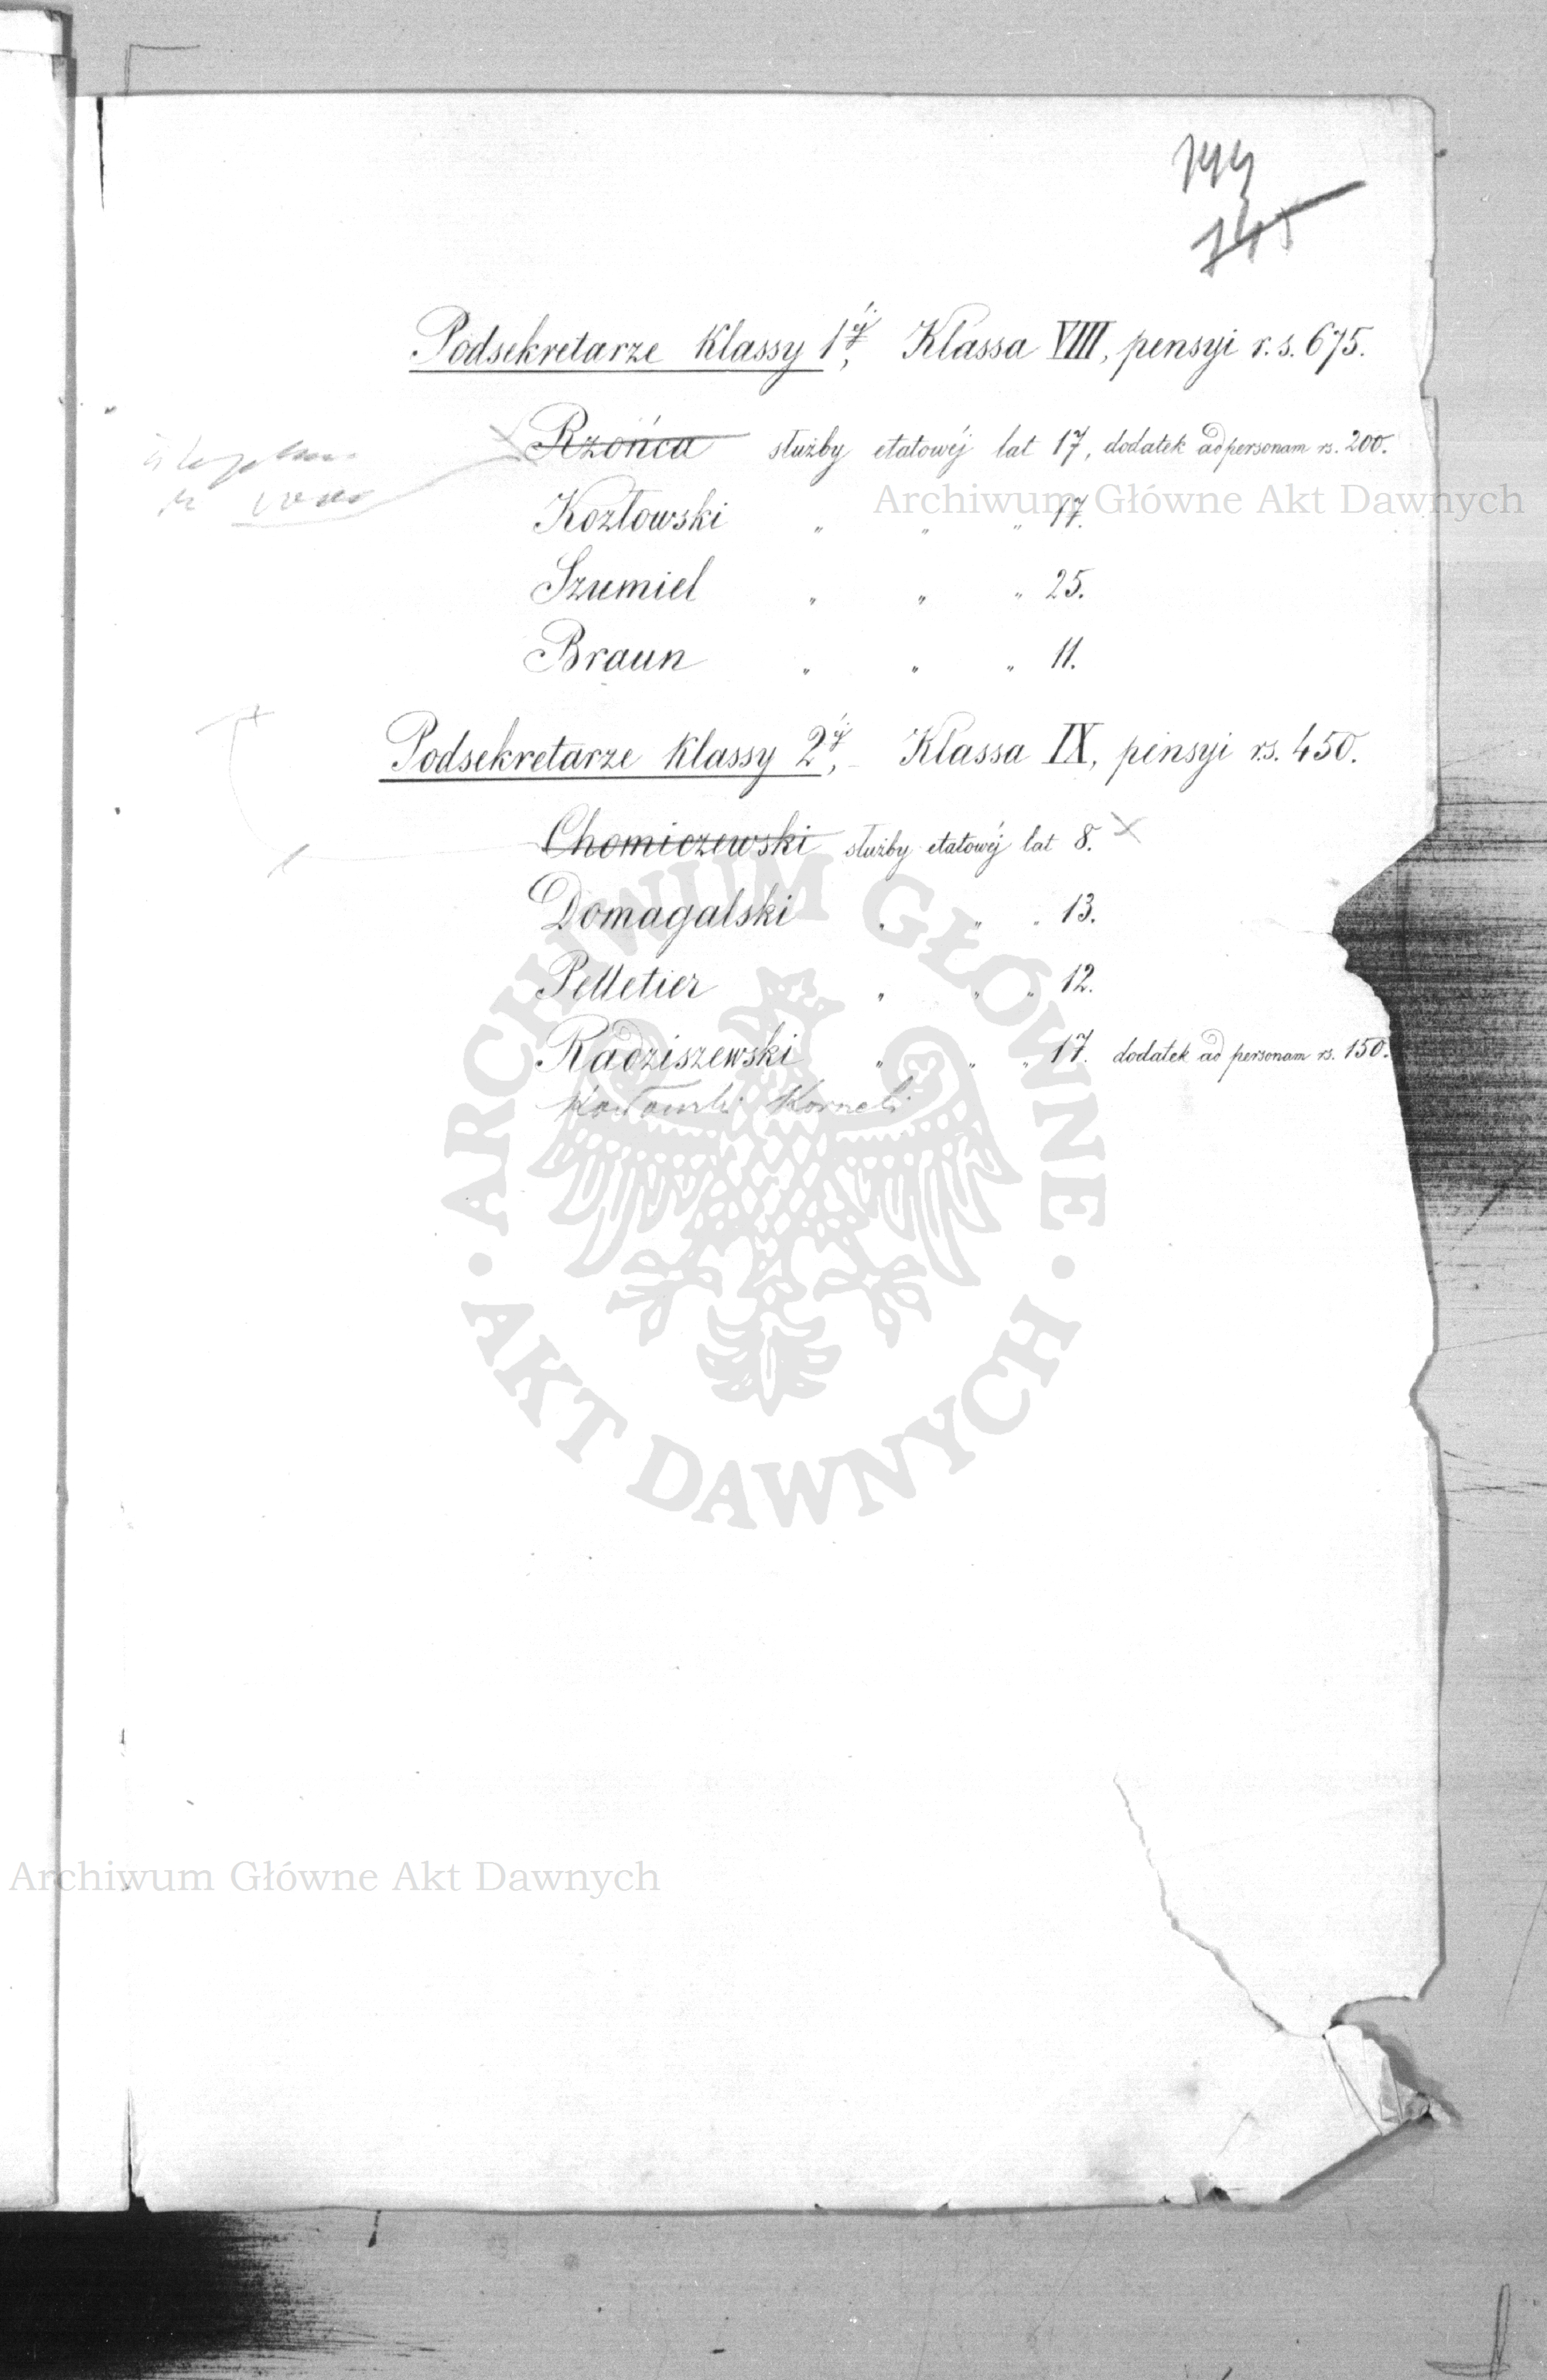 144
145
Podsekretarze klassy 1éj, Klassa VIII, pensyi r.s. 675.
Rzońca służby etatowéj lat 17, dodatek ad personam rs. 200.
Archiwum Główne Akt Dawnych
Kozłowski " " " 17.
Szumiel " " " 25.
Braun " " " 11.
Podsekretarze klassy 2éj, Klassa IX, pensyi r.s. 450.
Chomiczewski służby etatowéj lat 8.
Domagalski " " " 13.
Pelletier " " " 12.
Radziszewski " " " 17. dodatek ad personam rs. 150.
Korneli
ARCHIWUM GŁÓWNE
AKT DAWNYCH
Archiwum Główne Akt Dawnych